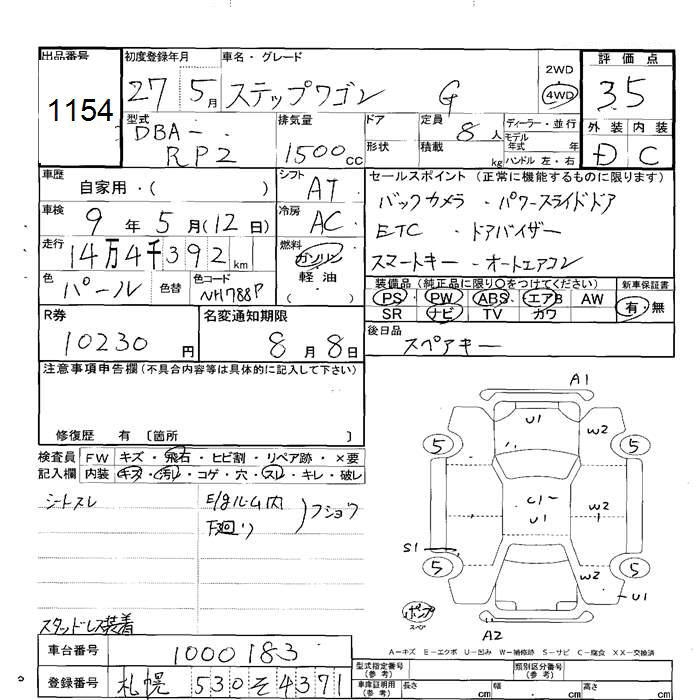 出品番号 初度登録年月 車名・グレード 2WD 評価点
1154 27 5月 ステップワゴン G 4WD 3.5
型式 排気量 ドア 定員 ディーラー・並行 外装 内装
DBA- 8人 モデル年式 年
RP2 1500cc 形状 積載 kg ハンドル 左・右 D C
車歴 シフト セールスポイント(正常に機能するものに限ります)
自家用・( ) AT バックカメラ・パワースライドドア
車検 冷房
9年5月(12日) AC ETC・ドアバイザー
走行 燃料
14万4千392km ガソリン スマートキー・オートエアコン
軽油
色 色替 色コード ( ) 装備品(純正品に限り○をつけてください) 新車保証書
パール NH788P PS PW ABS エアB AW 有・無
SR ナビ TV カワ
R券 名変通知期限 後日品
10230円 8月8日 スペアキー
注意事項申告欄(不具合内容等は具体的に記入して下さい)
A1
U1 W2
修復歴 有 〔箇所 〕 5 5
検査員 FW キズ・飛石・ヒビ割・リペア跡・×要
記入欄 内装 キズ・汚レ・コゲ・穴・スレ・キレ・破レ
シートスレ E/gルーム内 フショウ
下廻り
C1 W2
U1
S1
5 5
W2
U1
ポンプ
スペア
スタッドレス装着
A2
A-キズ E-エクボ U-凹み W-補修跡 S-サビ C-腐食 XX-交換済
車台番号 1000183 型式指定番号(参考) 類別区分番号(参考)
登録番号 札幌 530 そ 4371 車庫証明用(参考) 長さ cm 幅 cm 高さ cm